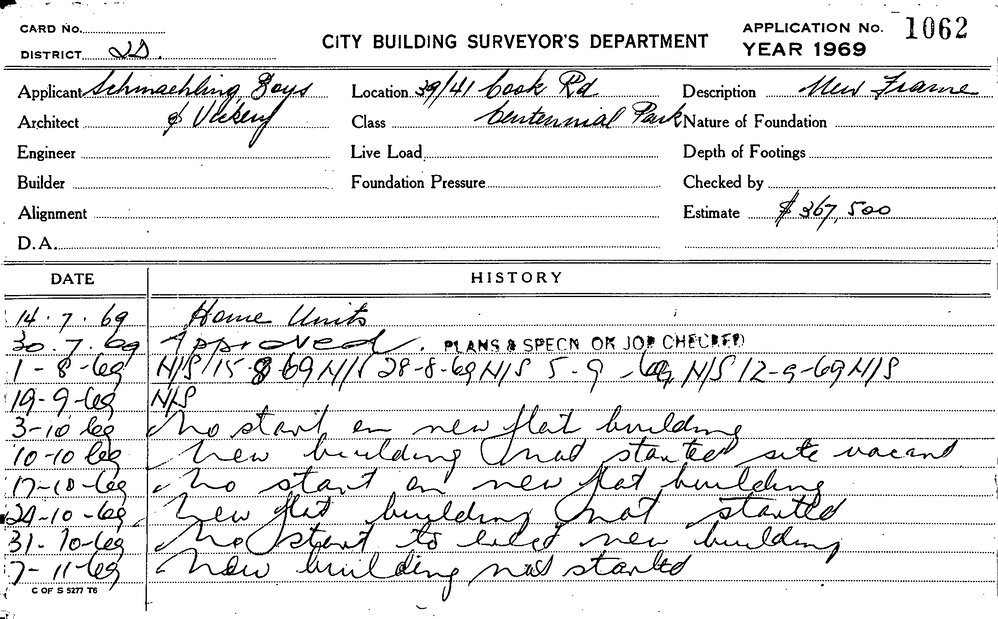 CARD No.
DISTRICT
CITY BUILDING SURVEYOR'S DEPARTMENT
APPLICATION No. 1062
YEAR 1969
Applicant Schmaehling Boys
Location 39/41 Cook Rd
Description New Frame
Architect
Class Centennial Park
Nature of Foundation
Engineer
Live Load
Depth of Footings
Builder
Foundation Pressure
Checked by
Alignment
Estimate $367,500
D.A.
DATE HISTORY
14.7.69 Home Units
30.7.69 Approved. PLANS & SPECN ON JOB CHECKED
1-8-69 N/S 15-8-69 N/S 28-8-69 N/S 5-9-69 N/S 12-9-69 N/S
19-9-69 N/S
3-10-69 No start on new flat building
10-10-69 New building not started site vacant
17-10-69 No start on new flat building
24-10-69 New flat building not started
31-10-69 No start to erect new building
7-11-69 New building not started
C OF S 5277 T6